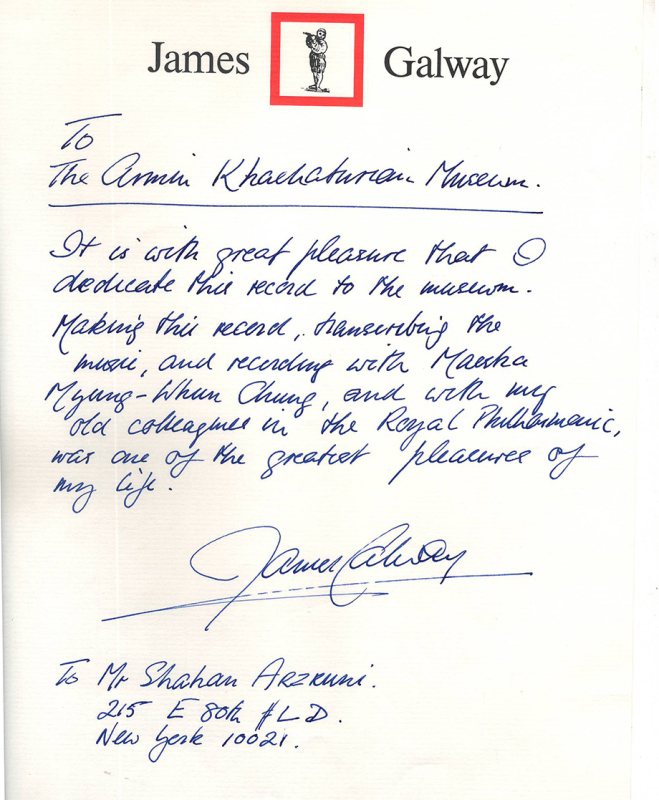 James Galway
To
The Armin Khachaturian Museum.
It is with great pleasure that I
dedicate this record to the museum.
Making this record, transcribing the
music, and recording with Maestra
Myung-Whun Chung, and with my
old colleagues in the Royal Philharmonic,
was one of the greatest pleasures of
my life.
James Galway
To Mr Shahan Arzruni.
215 E 80th #LD.
New York 10021.